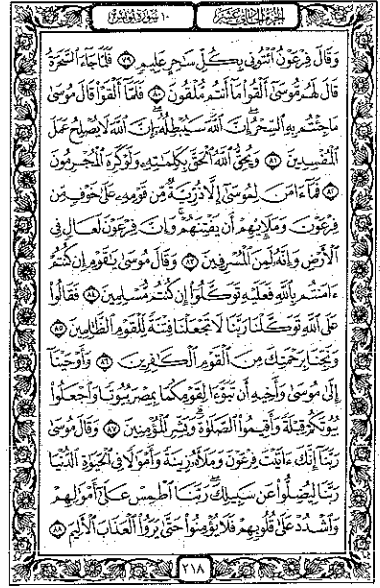 الجزء الحادي عشر ١٠ سورة يونس
وَقَالَ فِرْعَوْنُ ٱئْتُونِى بِكُلِّ سَٰحِرٍ عَلِيمٍ ٧٩ فَلَمَّا جَآءَ ٱلسَّحَرَةُ
قَالَ لَهُم مُّوسَىٰٓ أَلْقُوا۟ مَآ أَنتُم مُّلْقُونَ ٨٠ فَلَمَّآ أَلْقَوْا۟ قَالَ مُوسَىٰ
مَا جِئْتُم بِهِ ٱلسِّحْرُ إِنَّ ٱللَّهَ سَيُبْطِلُهُۥٓ إِنَّ ٱللَّهَ لَا يُصْلِحُ عَمَلَ
ٱلْمُفْسِدِينَ ٨١ وَيُحِقُّ ٱللَّهُ ٱلْحَقَّ بِكَلِمَٰتِهِۦ وَلَوْ كَرِهَ ٱلْمُجْرِمُونَ
٨٢ فَمَآ ءَامَنَ لِمُوسَىٰٓ إِلَّا ذُرِّيَّةٌ مِّن قَوْمِهِۦ عَلَىٰ خَوْفٍ مِّن
فِرْعَوْنَ وَمَلَإِي۟هِمْ أَن يَفْتِنَهُمْ وَإِنَّ فِرْعَوْنَ لَعَالٍ فِى
ٱلْأَرْضِ وَإِنَّهُۥ لَمِنَ ٱلْمُسْرِفِينَ ٨٣ وَقَالَ مُوسَىٰ يَٰقَوْمِ إِن كُنتُمْ
ءَامَنتُم بِٱللَّهِ فَعَلَيْهِ تَوَكَّلُوٓا۟ إِن كُنتُم مُّسْلِمِينَ ٨٤ فَقَالُوا۟
عَلَى ٱللَّهِ تَوَكَّلْنَا رَبَّنَا لَا تَجْعَلْنَا فِتْنَةً لِّلْقَوْمِ ٱلظَّٰلِمِينَ ٨٥
وَنَجِّنَا بِرَحْمَتِكَ مِنَ ٱلْقَوْمِ ٱلْكَٰفِرِينَ ٨٦ وَأَوْحَيْنَآ
إِلَىٰ مُوسَىٰ وَأَخِيهِ أَن تَبَوَّءَا لِقَوْمِكُمَا بِمِصْرَ بُيُوتًا وَٱجْعَلُوا۟
بُيُوتَكُمْ قِبْلَةً وَأَقِيمُوا۟ ٱلصَّلَوٰةَ وَبَشِّرِ ٱلْمُؤْمِنِينَ ٨٧ وَقَالَ مُوسَىٰ
رَبَّنَآ إِنَّكَ ءَاتَيْتَ فِرْعَوْنَ وَمَلَأَهُۥ زِينَةً وَأَمْوَٰلًا فِى ٱلْحَيَوٰةِ ٱلدُّنْيَا
رَبَّنَا لِيُضِلُّوا۟ عَن سَبِيلِكَ رَبَّنَا ٱطْمِسْ عَلَىٰٓ أَمْوَٰلِهِمْ
وَٱشْدُدْ عَلَىٰ قُلُوبِهِمْ فَلَا يُؤْمِنُوا۟ حَتَّىٰ يَرَوُا۟ ٱلْعَذَابَ ٱلْأَلِيمَ ٨٨
٢١٨